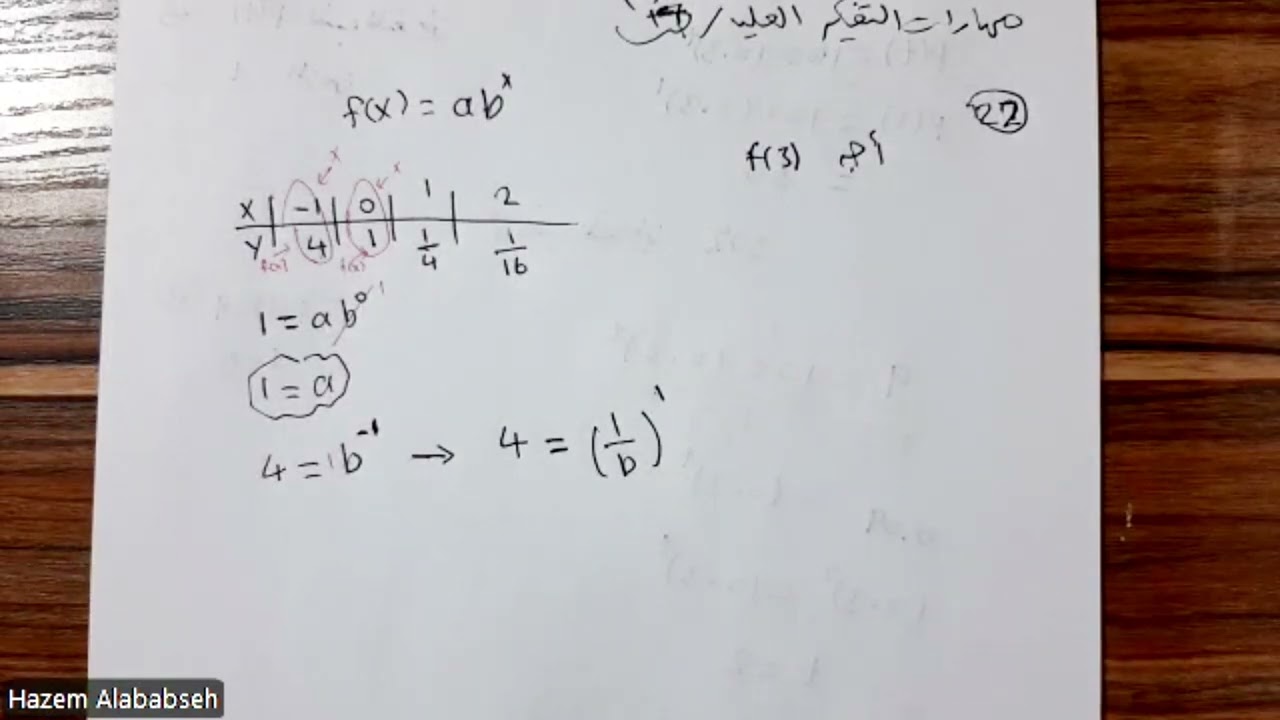 مهارات التفكير العليا /
22
أجد f(3)
f(x) = ab^x
x x
X | -1 | 0 | 1 | 2
Y | 4 | 1 | 1/4 | 1/16
f(x) f(x)
1 = ab^0 1
1 = a
4 = 1b^-1 → 4 = (1/b)^1
Hazem Alababseh